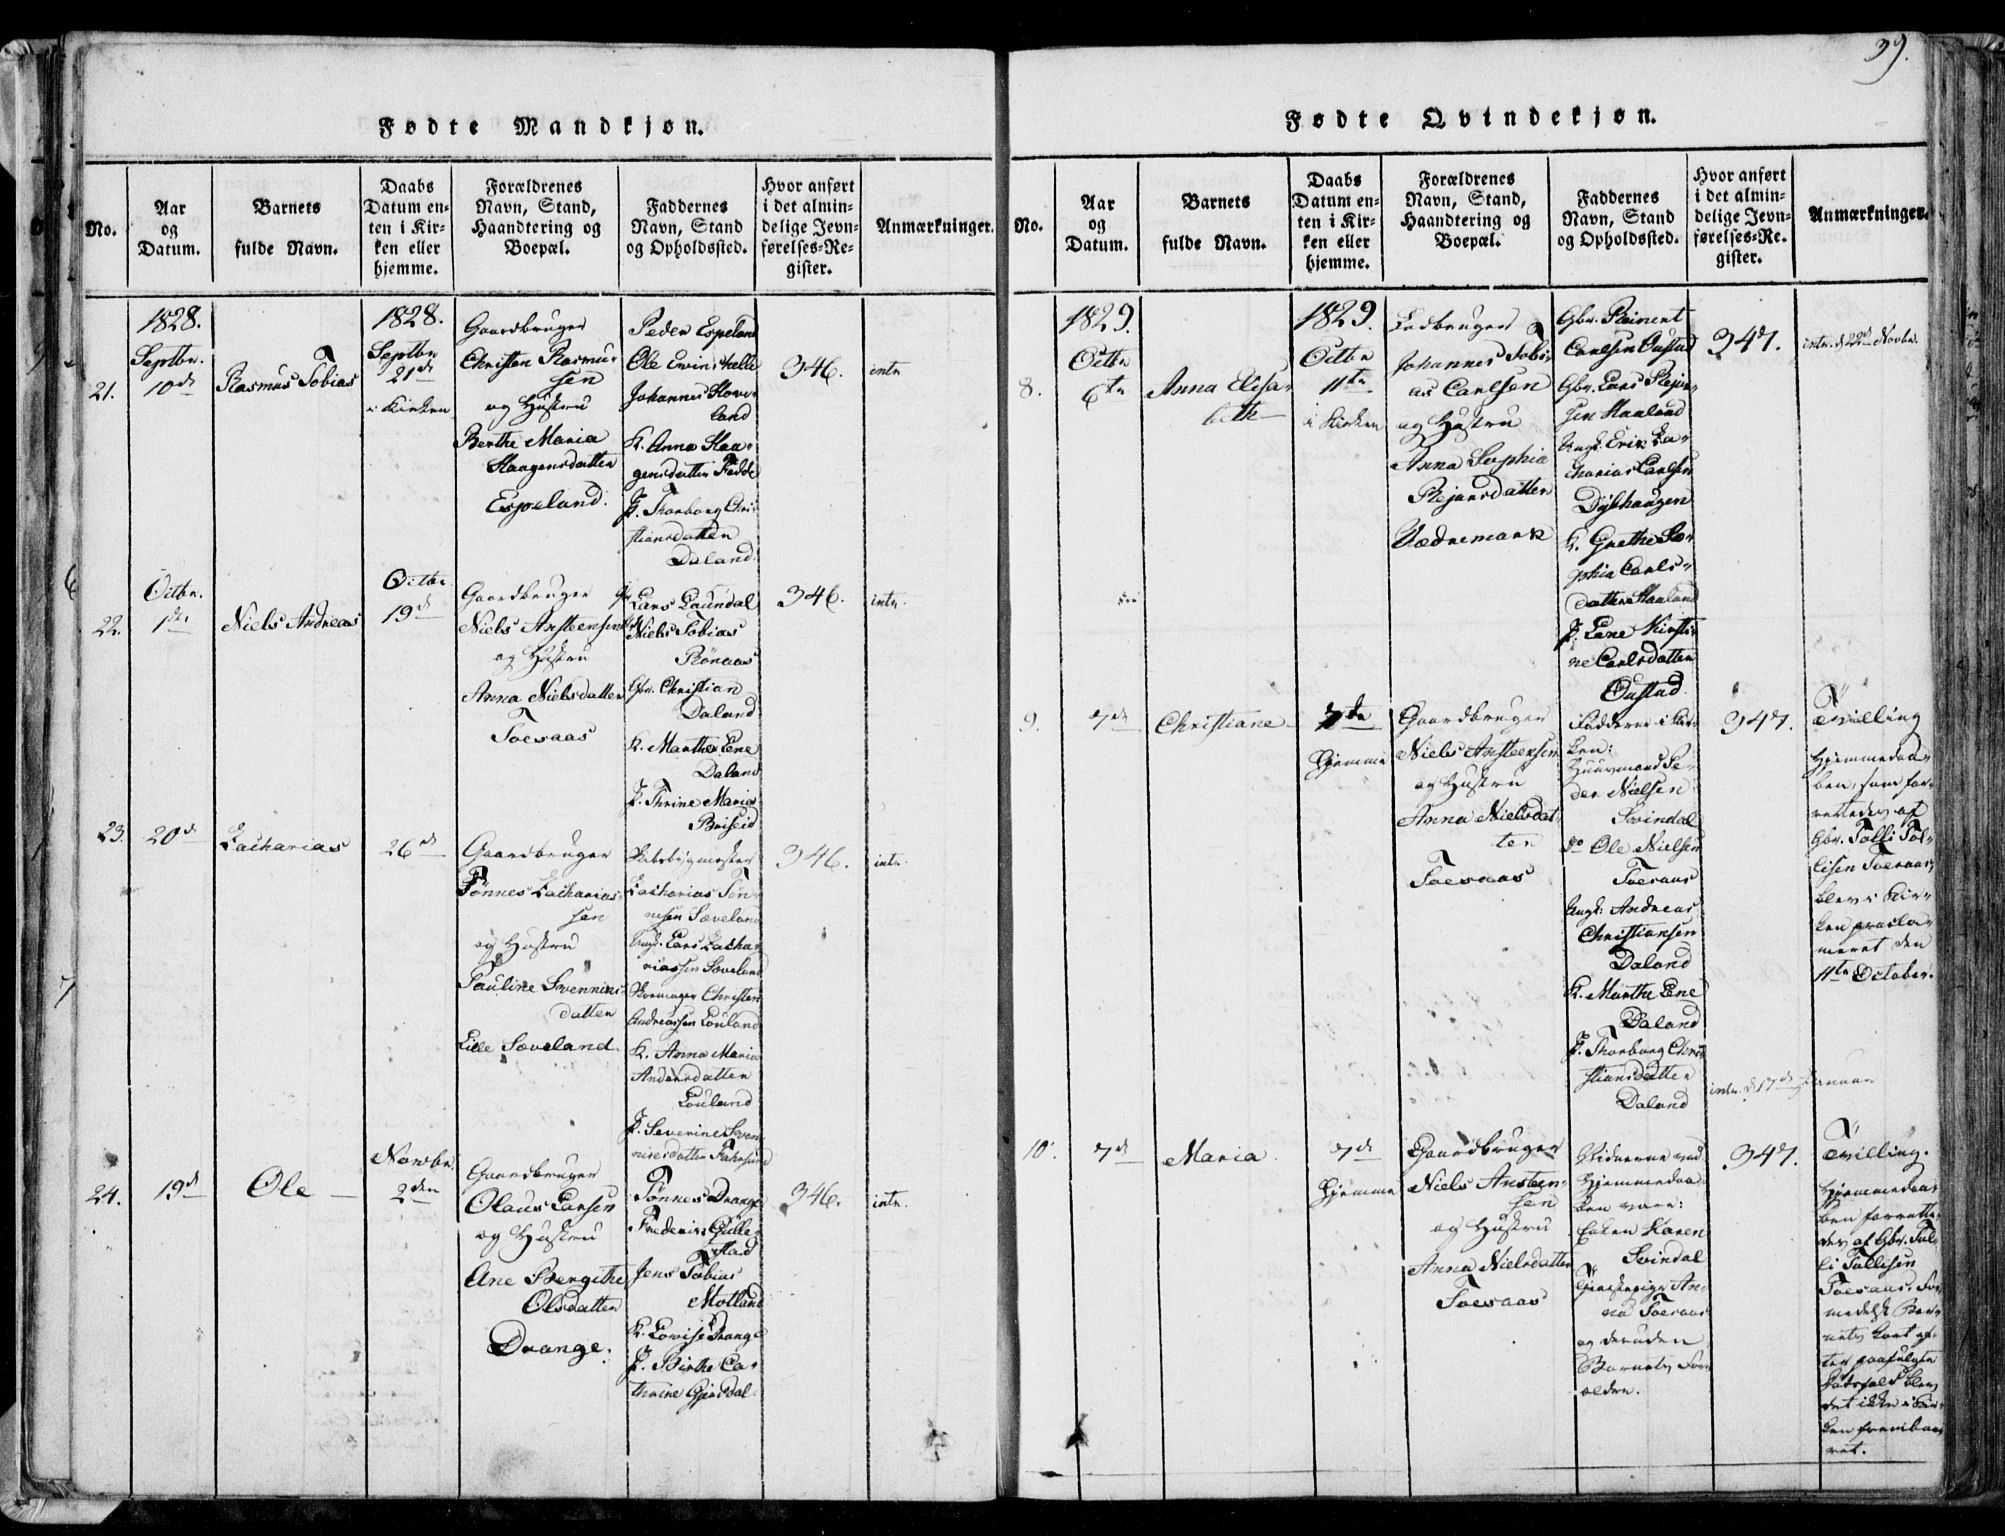 39.
Fødte Mandkjøn.
No.
Aar
og
Datum.
Barnets
fulde Navn.
Daabs
Datum en-
ten i Kir-
ken eller
hjemme.
Forældrenes
Navn, Stand,
Haandtering og
Boepæl.
Faddernes
Navn, Stand
og Opholdssted.
Hvor anført
i det almin-
delige Jevn-
førelses-Re-
gister.
Anmærkninger.
21.
1828.
Septbr.
10de
Rasmus Tobias
1828.
Septbr
21de
i Kirken
Gaardbruger
Christen Rasmu-
sen
og Hustru
Berthe Maria
Haagensdatter
Espeland.
Peder Espeland
Ole Ervinskelle
Johannes Hove-
land
K. Anna Haa-
gensdatter Fedde
P. Thorborg Chri-
stiansdatter
Daland.
346.
intr
22.
Octbr.
1ste
Niels Andreas
Octbr
19de
Gaardbruger
Niels Ansteensen
og Hustru
Anna Nielsdatter
Toesaas
Lars Laundal
Niels Tobias
Rönaas
Gbr. Christian
Daland
K. Marthe Lene
Daland
P. Thrine Maria
Briseid
346.
intr.
23.
20de
Zacharias
26de
Gaardbruger
Tönnes Zacharias-
sen
og Hustru
Pauline Svennins-
datter
Lille Sæveland.
Zacharias Tön-
nesen Sæveland
Ungk. Lars Zacha-
riassen Sæveland
Skomager Christen
Andreassen Louland
K. Anna Maria
Andersdatter
Louland
P. Severine Sven-
346.
intr.
24.
19de
Ole
Novbr.
2den
Gaardbruger
Olaus Larsen
og Hustru
Ane Bergithe
Olsdatter
Drange.
Tönnes Drange
Frederik Gulle-
stad
Jens Tobias
Motland
K. Lovise Drange
P. Birthe Ca-
thrine Gjerdal.
346.
intr.
Fødte Qvindekjøn.
No.
Aar
og
Datum.
Barnets
fulde Navn.
Daabs
Datum en-
ten i Kir-
ken eller
hjemme.
Forældrenes
Navn, Stand,
Haandtering og
Boepæl.
Faddernes
Navn, Stand
og Opholdssted.
Hvor anført
i det almin-
delige Jevn-
førelses-Re-
gister.
Anmærkninger.
8.
1829.
Octbr
6te
Anna Elisa-
beth
1829.
Octbr
11te
i Kirken
Johannes Tobi-
as Carlsen
og Hustru
Anna Sophia
Rejersdatter
Vædremark
Gbr. Reinert
Carlsen Oustad
Gbr. Lars Rejer-
sen Haaland
Ungk. Erik Za-
charias Carlsen
Dybhaugen
K. Grethe So-
phia Carls-
datter Haaland
P. Lene Kirsti-
ne Carlsdatter
Oustad.
347.
intr. d. 22de Novbr.
9.
7de
Christiane
7de
Hjemme
Gaardbruger
Niels Ansteensen
og Hustru
Anna Nielsdat-
ter
Toesaas
Fadderne i Kir-
ken:
Huusmand Pe-
der Nielsen
Svindal
do Ole Nielsen
Toesaas
Ungk: Andreas
Christiansen
Daland
K. Marthe Lene
Daland
P. Thorborg Chri-
stiansdatter
Daland
347.
Tvilling
Hjemmedaa-
ben, som for-
rettedes af
Gbr. Tolli Tol-
lisen Toesaas,
blev i Kir-
ken procla-
meret den
11te October.
intr. d. 17de Januar
10.
7de
Maria
7de
Hjemme
Gaardbruger
Niels Ansteen-
sen
og Hustru
Anna Nielsdatter
Toesaas
Vidnerne ved
Hjemmedaa-
ben vare:
Enken Karen
Svindal
Tjenestepige An-
na Toesaas
og desuden
Barnets For-
ældre.
347.
Tvilling.
Hjemmedaa-
ben forrette-
des af Gbr. Tol-
li Tollisen
Toesaas. For-
medelst Bar-
nets kort ef-
ter paafulgte
Dødsfald blev
det ikke i Kir-
ken frembaa-
ret.